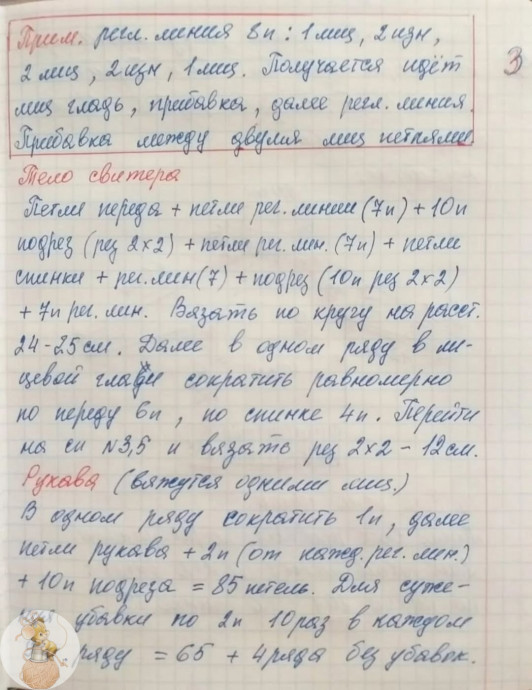 Прим. регл. линия 8п: 1 лиц, 2 изн,
2 лиц, 2 изн, 1 лиц. Получается идёт
лиц гладь, прибавка, далее регл. линия.
Прибавка между двумя лиц петлями.
3
Тело свитера
Петли переда + петли рег. линии (7п) + 10п
подрез (рез 2х2) + петли рег. лин. (7п) + петли
спинки + рег. лин (7) + подрез (10п рез 2х2)
+ 7п рег. лин. Вязать по кругу на расст.
24-25см. Далее в одном ряду в ли-
цевой глади сократить равномерно
по переду 6п, по спинке 4п. Перейти
на сп №3,5 и вязать рез 2х2 - 12см.
Рукава (вяжутся одними лиц.)
В одном ряду сократить 1п, далее
петли рукава + 2п (от кажд. рег. лин.)
+ 10п подреза = 85 петель. Для суже-
убавки по 2п 10 раз в каждом
ряду = 65 + 4 ряда без убавок.